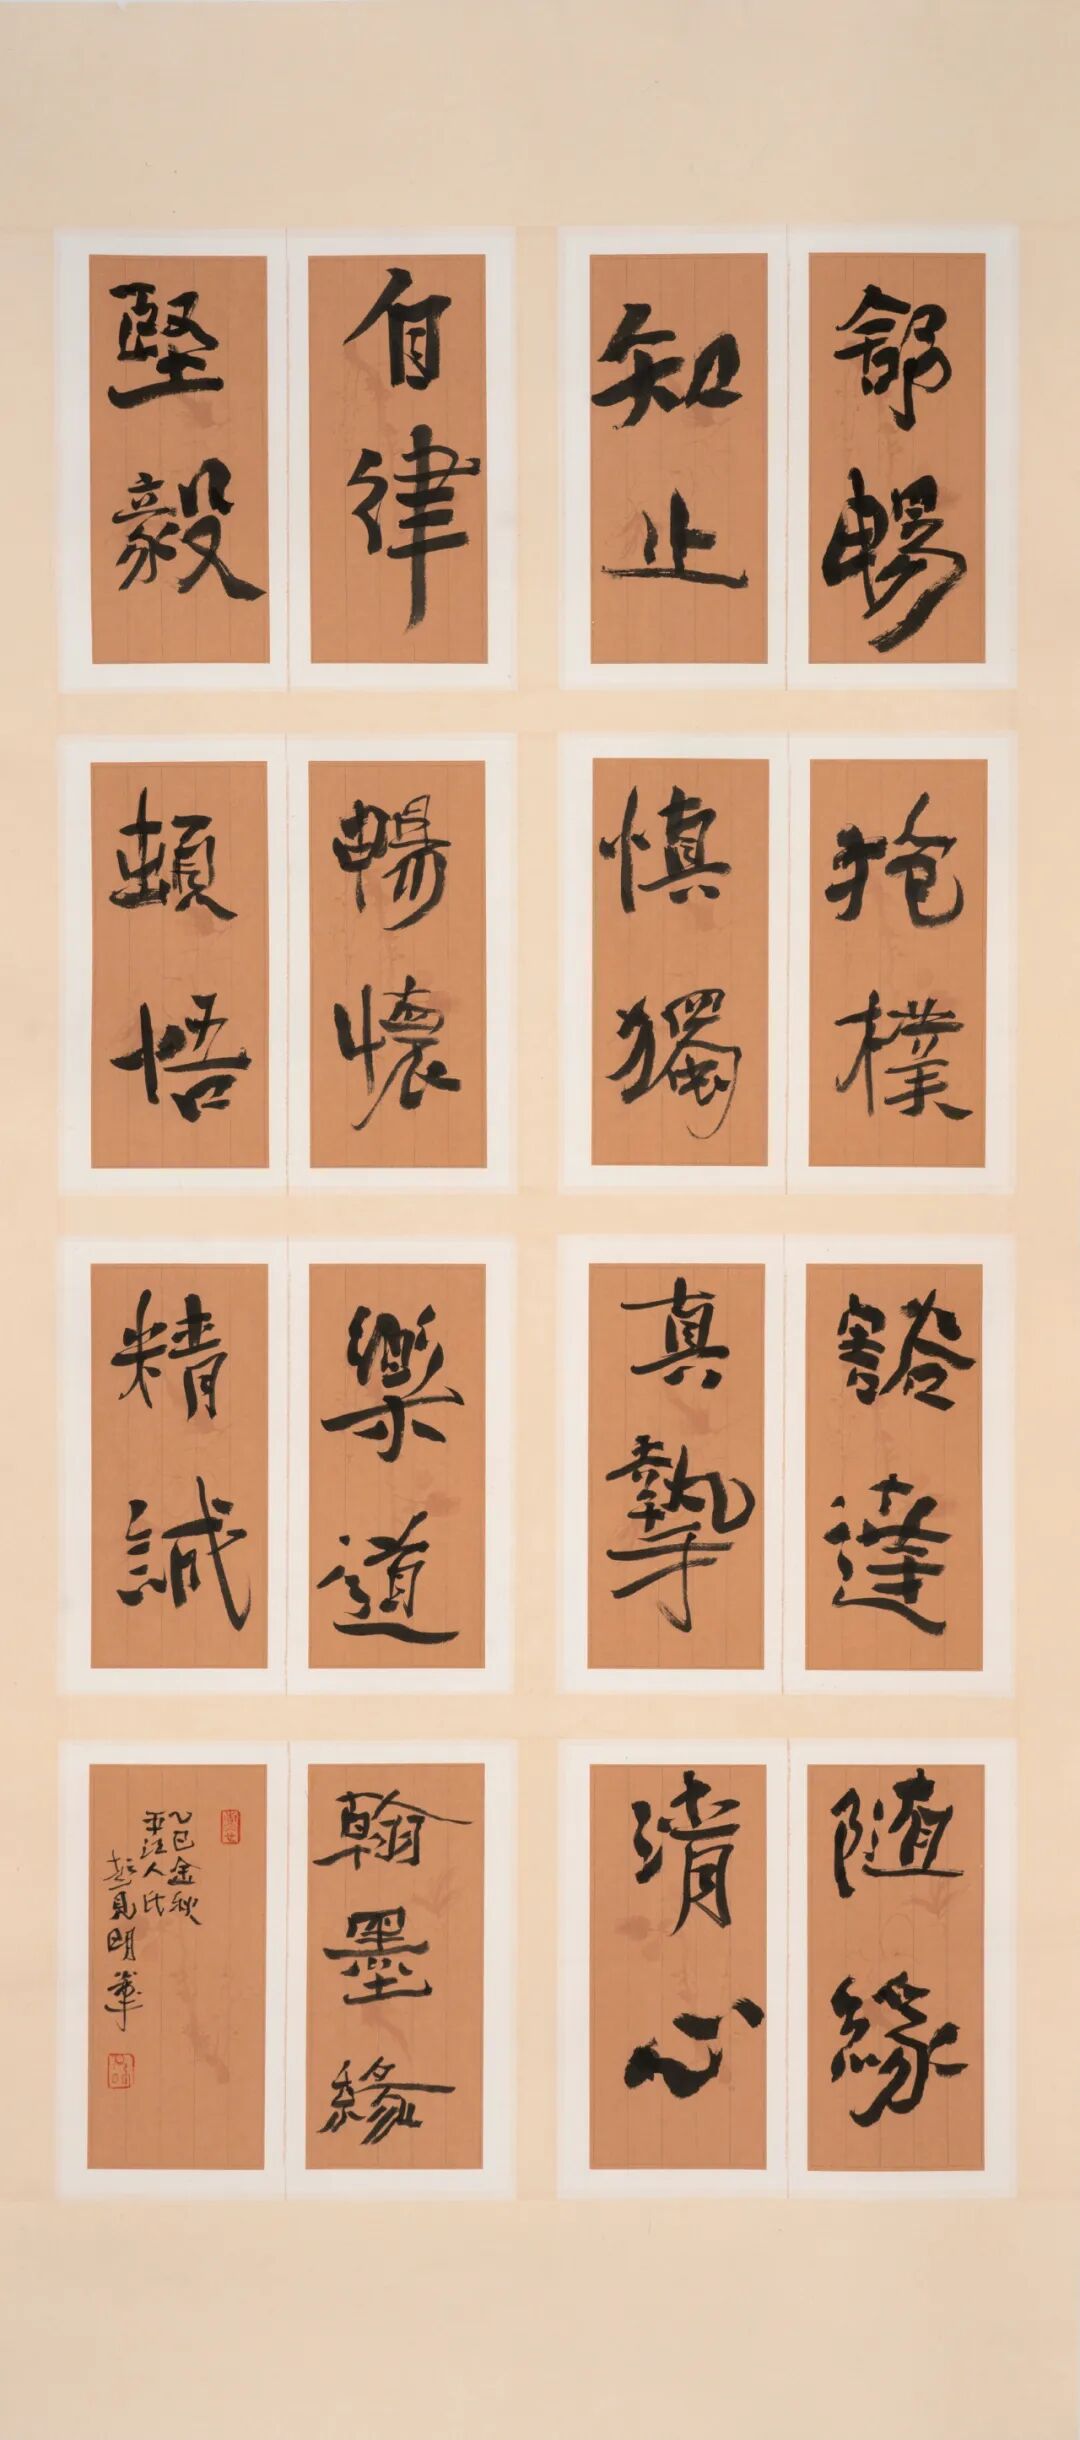 舒暢
知止
自律
堅毅
抱樸
慎獨
暢懷
頓悟
豁達
真摯
樂道
精誠
隨緣
清心
翰墨緣
乙巳金秋
平江人氏
彭見明筆